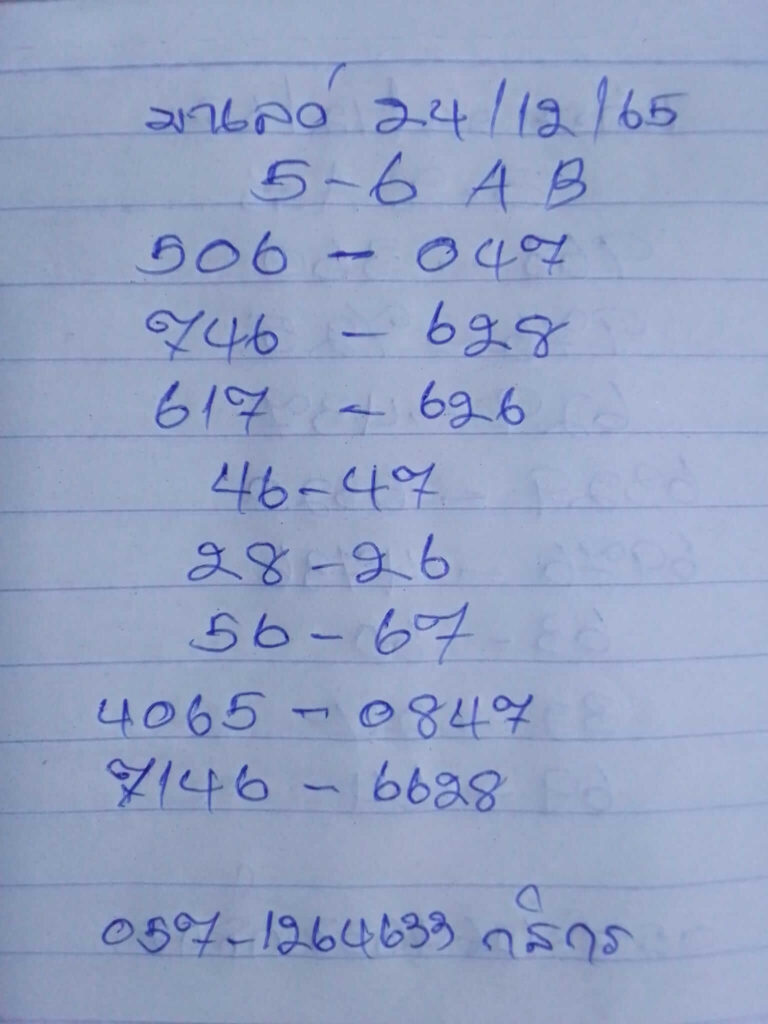 มาเลย์ 24/12/65
5-6 A B
506 - 047
746 - 628
617 - 626
46-47
28-26
56-67
4065 - 0847
7146 - 6628
057-1264633 กสิกร